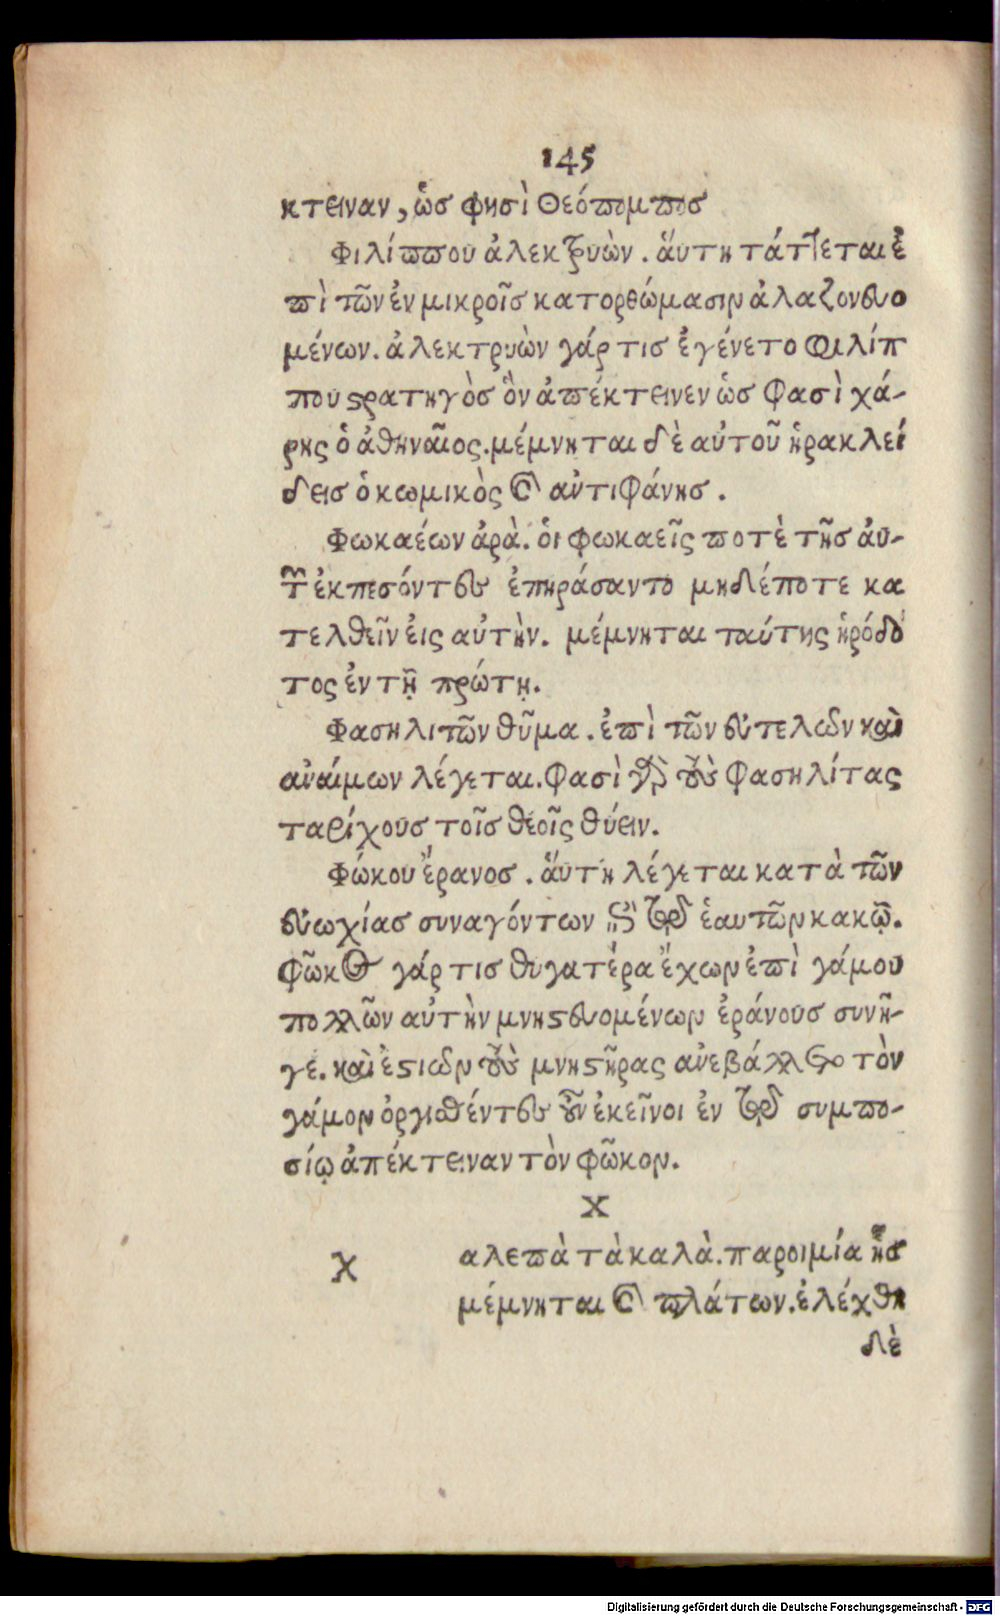 145
κτειναν, ὥσ φησὶ Θεόπομποσ
Φιλίππου ἀλεκτρυὼν. ἅυτη τάττεται ἐ
πὶ τῶν ἐν μικροῖσ κατορθώμασιν ἀλαζονευο
μένων. ἀλεκτρυὼν γάρ τισ ἐγένετο Φιλίπ
που στρατηγὸσ ὃν ἀπέκτεινεν ὡσ φασὶ χά-
ρης ὁ ἀθηναῖος. μέμνηται δὲ αὐτοῦ ἡρακλεί
δεισ ὁ κωμικὸς καὶ αὐτιφάνησ.
Φωκαέων ἀρὰ. ὁι φωκαεῖς ποτὲ τῆσ ἀυ-
τῶν ἐκπεσόντες ἐπηράσαντο μηδέποτε κα
τελθεῖν ἐις αὐτὴν. μέμνηται ταύτης ἡρόδο
τος ἐν τῇ πρώτῃ.
Φασηλιτῶν θῦμα. ἐπὶ τῶν ευτελῶν καὶ
αναίμων λέγεται. φασὶ γὰρ τοὺς Φασηλίτας
ταρίχουσ τοῖσ θεοῖς θύειν.
Φώκου ἔρανοσ. ἅυτη λέγεται κατὰ τῶν
ευωχίασ συναγόντων ἐπὶ τῷ ἑαυτῶν κακῷ.
Φῶκος γάρ τισ θυγατέρα ἔχων ἐπὶ γάμου
πολλῶν αὐτὴν μνηστευομένων ἐράνουσ συνῆ-
γε. καὶ ἐστιῶν τοὺς μνηστῆρας ανεβάλλετο τὸν
γάμον ὀργισθέντες οὖν ἐκεῖνοι ἐν τῷ συμπο-
σίῳ ἀπέκτειναν τὸν φῶκον.
Χ
χ αλεπὰ τὰ καλὰ. παροιμία ἧσ
μέμνηται καὶ πλάτων. ἐλέχθη
δὲ
Digitalisierung gefördert durch die Deutsche Forschungsgemeinschaft - DFG